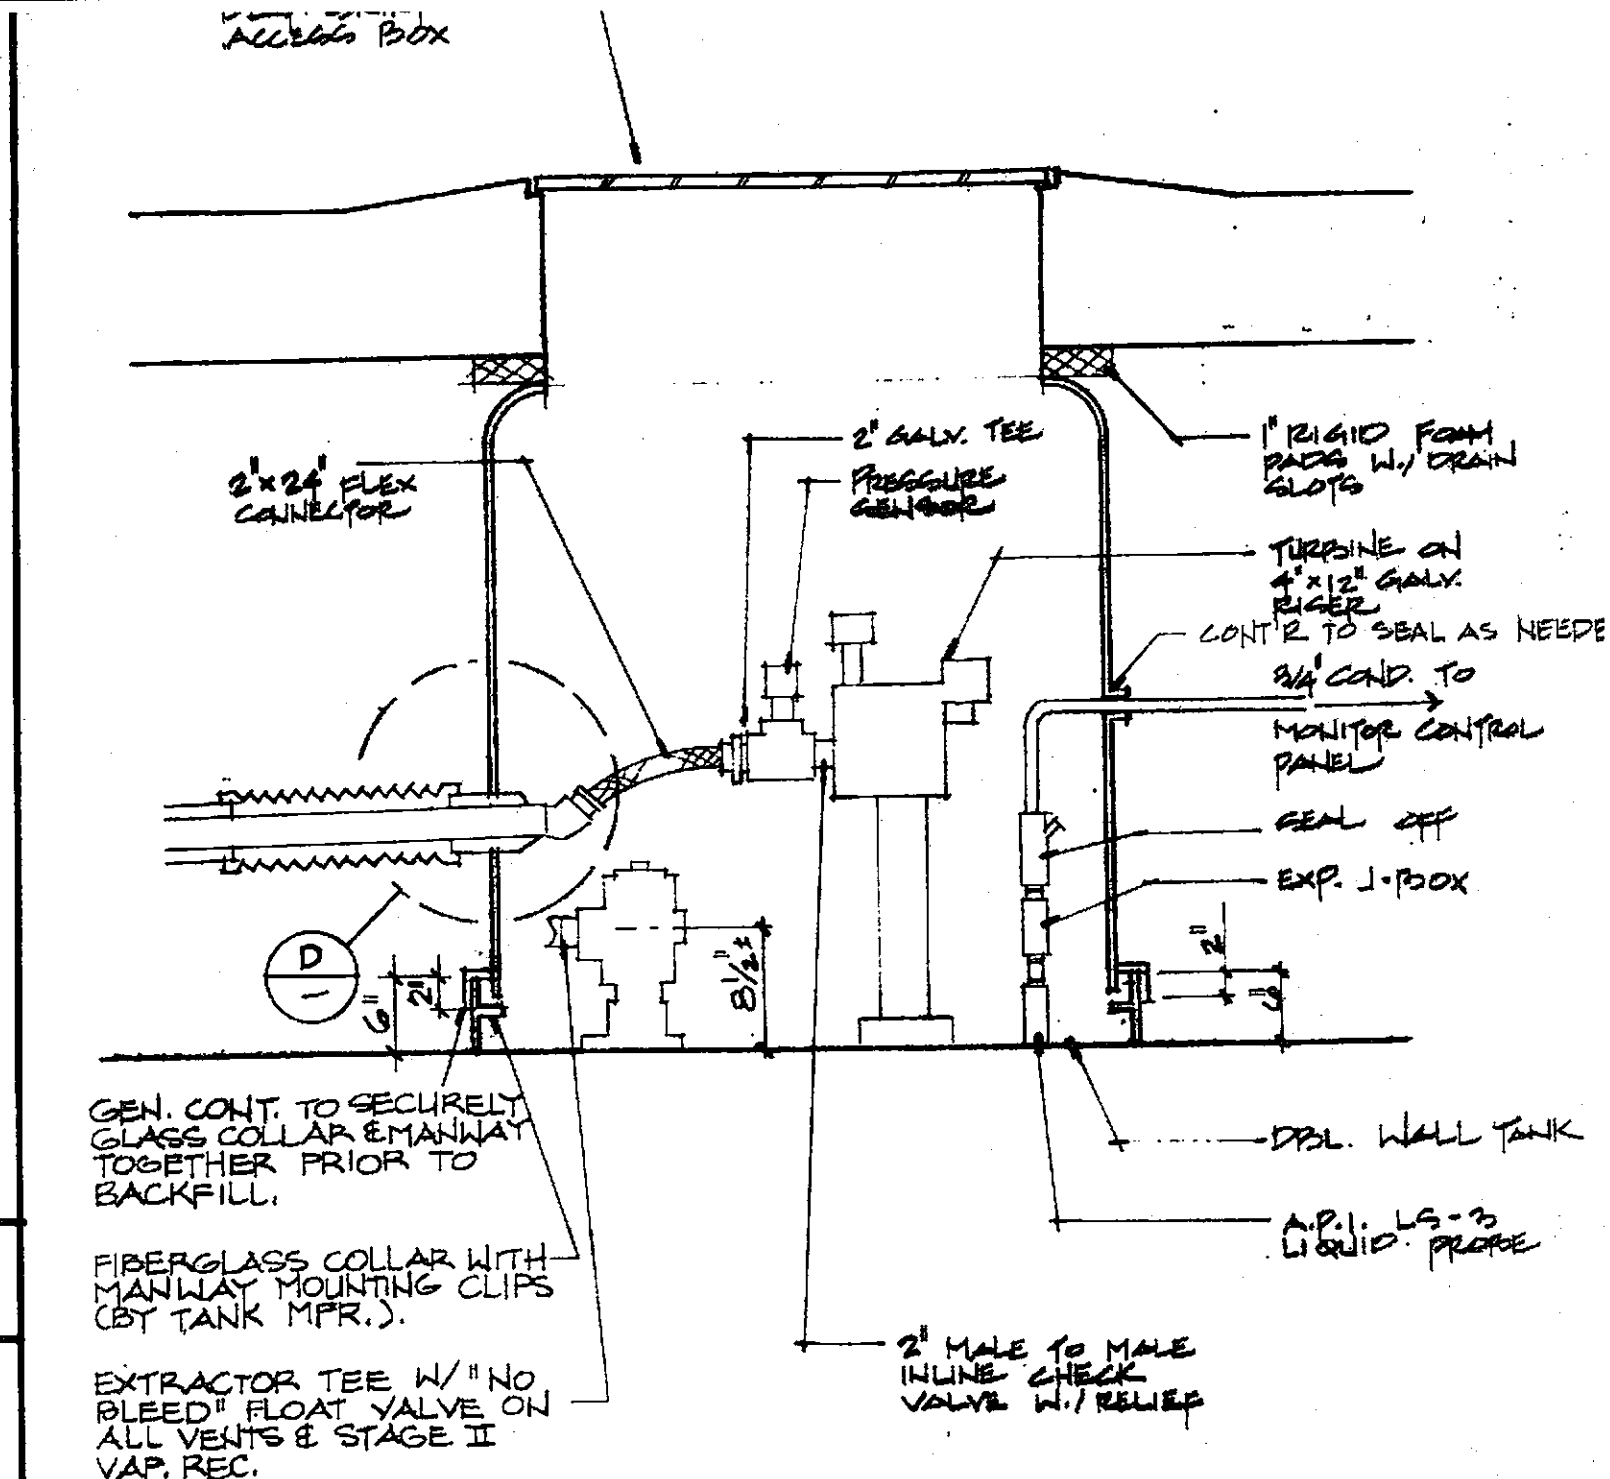 ACCESS BOX
2" GALV. TEE
PRESSURE
SENSOR
2"x24" FLEX
CONNECTOR
1" RIGID FOAM
PADS W./ DRAIN
SLOTS
TURBINE ON
4"x12" GALV.
RISER
CONT'R TO SEAL AS NEEDE
3/4" COND. TO
MONITOR CONTROL
PANEL
SEAL OFF
EXP. J-BOX
D
6"
2"
8 1/2" ±
2"
6"
GEN. CONT. TO SECURELY
GLASS COLLAR & MANWAY
TOGETHER PRIOR TO
BACKFILL.
FIBERGLASS COLLAR WITH
MANWAY MOUNTING CLIPS
(BY TANK MFR.).
EXTRACTOR TEE W/ "NO
BLEED" FLOAT VALVE ON
ALL VENTS & STAGE II
VAP. REC.
DBL. WALL TANK
A.P.I. LS-3
LIQUID PROBE
2" MALE TO MALE
INLINE CHECK
VALVE W./ RELIEF